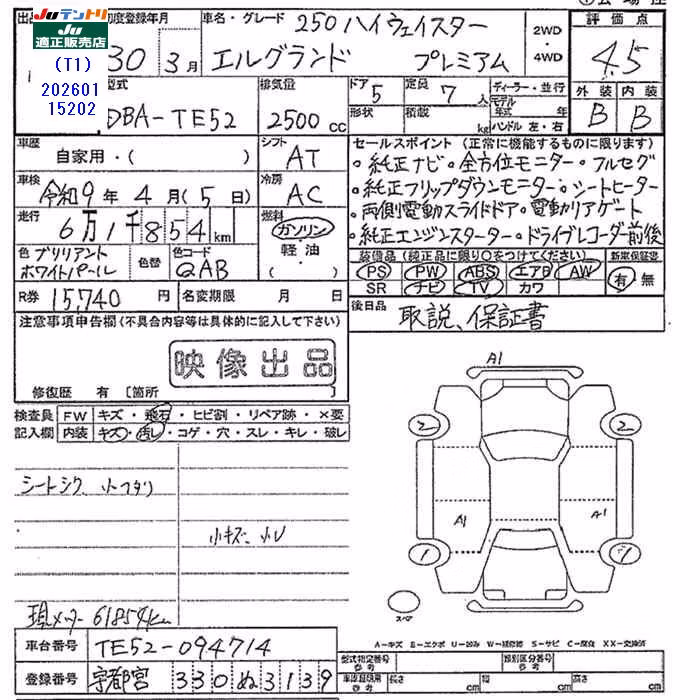 Juテントリ
Ju
適正販売店
(T1)
202601
15202
初度登録年月
30年 3月
車名・グレード
250ハイウェイスター
エルグランド プレミアム
2WD
・
4WD
評価点
4.5
外装 内装
B B
型式
DBA-TE52
排気量
2500cc
ドア
5
形状
定員
7人
積載
kg
ディーラー・並行
モデル
年式 年
ハンドル 左・右
車歴
自家用・( )
シフト
AT
車検
令和9年4月(5日)
冷房
AC
走行
6万1千854km
燃料
ガソリン
軽・油
( )
色 ブリリアント
ホワイトパール
色替
色コード
QAB
R券 15,740円
名変期限 月 日
セールスポイント (正常に機能するものに限ります)
・純正ナビ・全方位モニター・フルセグ
・純正フリップダウンモニター・シートヒーター
・両側電動スライドドア・電動リアゲート
・純正エンジンスターター・ドライブレコーダー前後
装備品(純正品に限り○をつけてください)
新車保証書
PS PW ABS エアB AW
SR ナビ TV カワ
有・無
後日品
取説、保証書
注意事項申告欄(不具合内容等は具体的に記入して下さい)
映像出品
修復歴 有 〔箇所 〕
検査員
記入欄
FW キズ・飛石・ヒビ割・リペア跡・×要
内装 キズ・汚し・コゲ・穴・スレ・キレ・破し
シートシワ 小フタリ
小キズ 小U
現メーター 61854km
A1
2 2
A1 A1
1 1
スペア
A-キズ E-エクボ U-凹み W-補修跡 S-サビ C-腐食 XX-交換済
車台番号 TE52-094714
登録番号 宇都宮 330ぬ3139
型式指定番号
参考
類別区分番号
参考
車庫証明用
参考
長さ cm
幅 cm
高さ cm